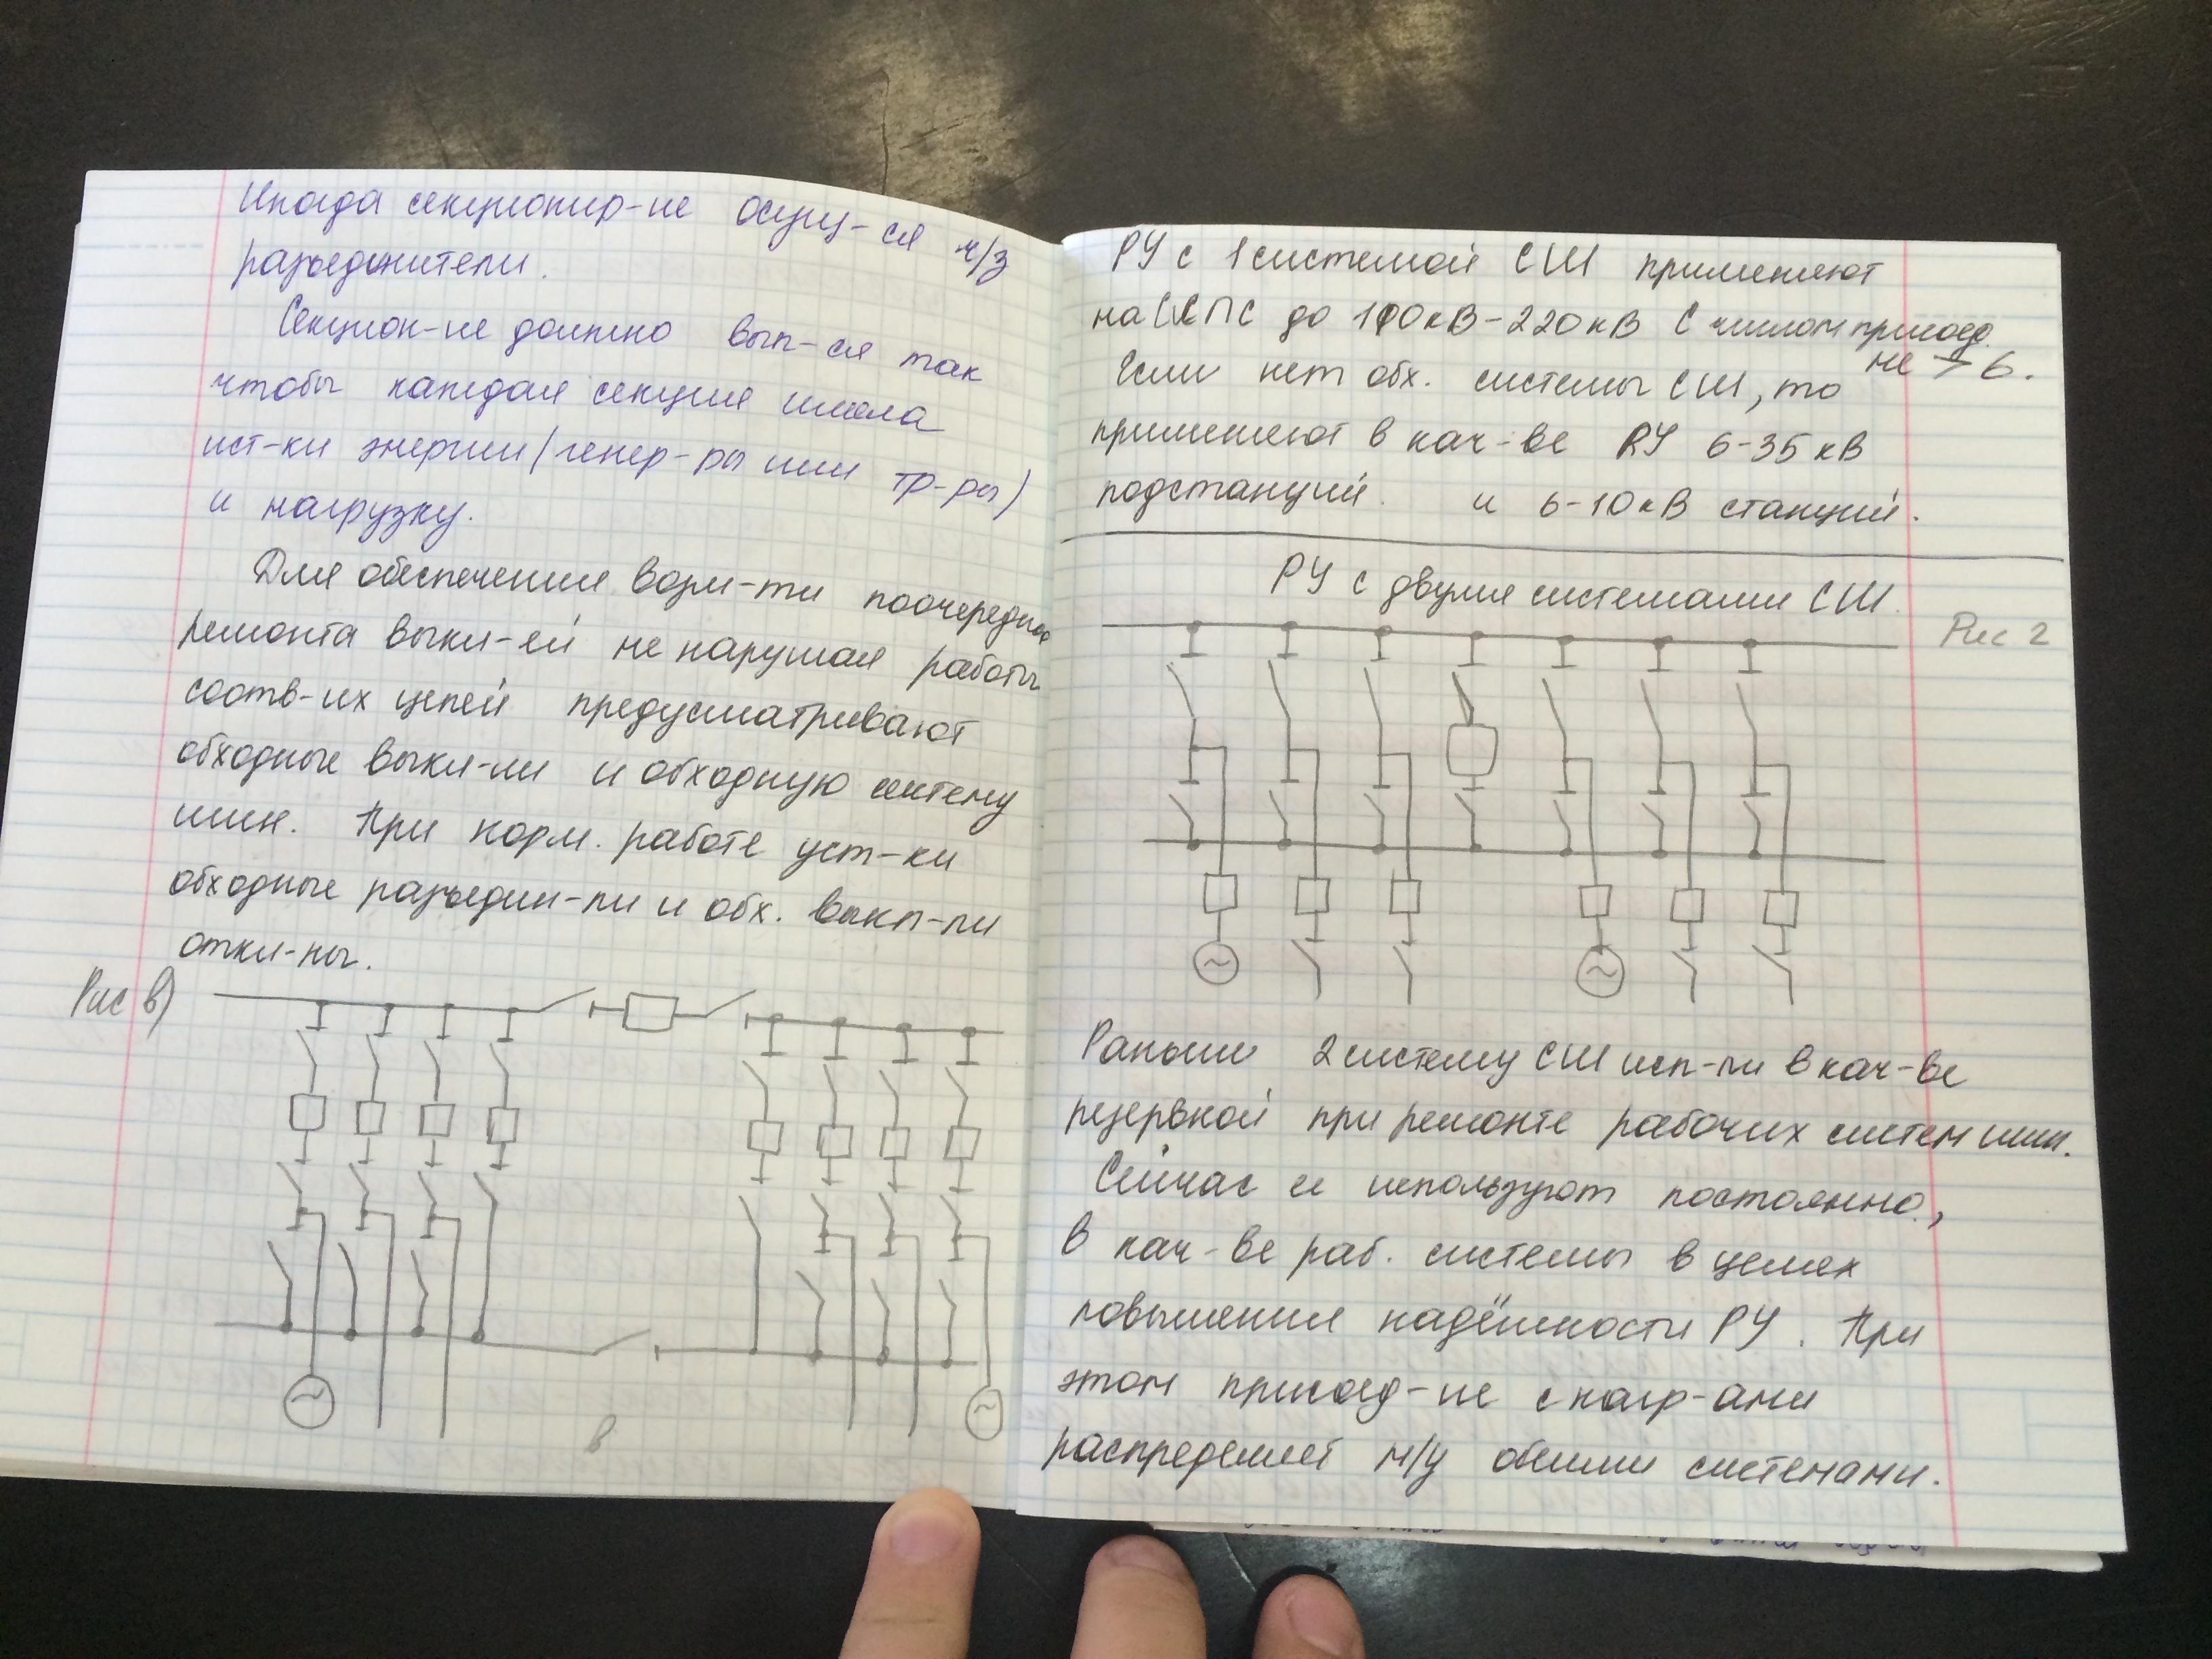 Иногда секционир-ие осущ-ся ч/з
разъединители.
Секцион-ие должно вып-ся так
чтобы каждая секция имела
ист-ки энергии (генер-ры или тр-ры)
и нагрузку.
Для обеспечения возм-ти поочередно
ремонта выкл-ей не нарушая работы
соотв-их цепей предусматривают
обходные выкл-ли и обходную систему
шин. При норм. работе уст-ки
обходные разъедин-ли и обх. выкл-ли
откл-ны.
Рис в)
в
РУ с 1 системой СШ применяют
на ПС до 110кВ-220кВ с числом присоед.
не > 6.
Если нет обх. системы СШ, то
применяют в кач-ве РУ 6-35 кВ
подстанций. и 6-10кВ станций.
РУ с двумя системами СШ.
Рис 2
Раньше 2 систему СШ исп-ли в кач-ве
резервной при ремонте рабочих систем шин.
Сейчас ее используют постоянно,
в кач-ве раб. системы в целях
повышения надёжности РУ. При
этом присоед-ие с нагр-ами
распределяет м/у обеими системами.